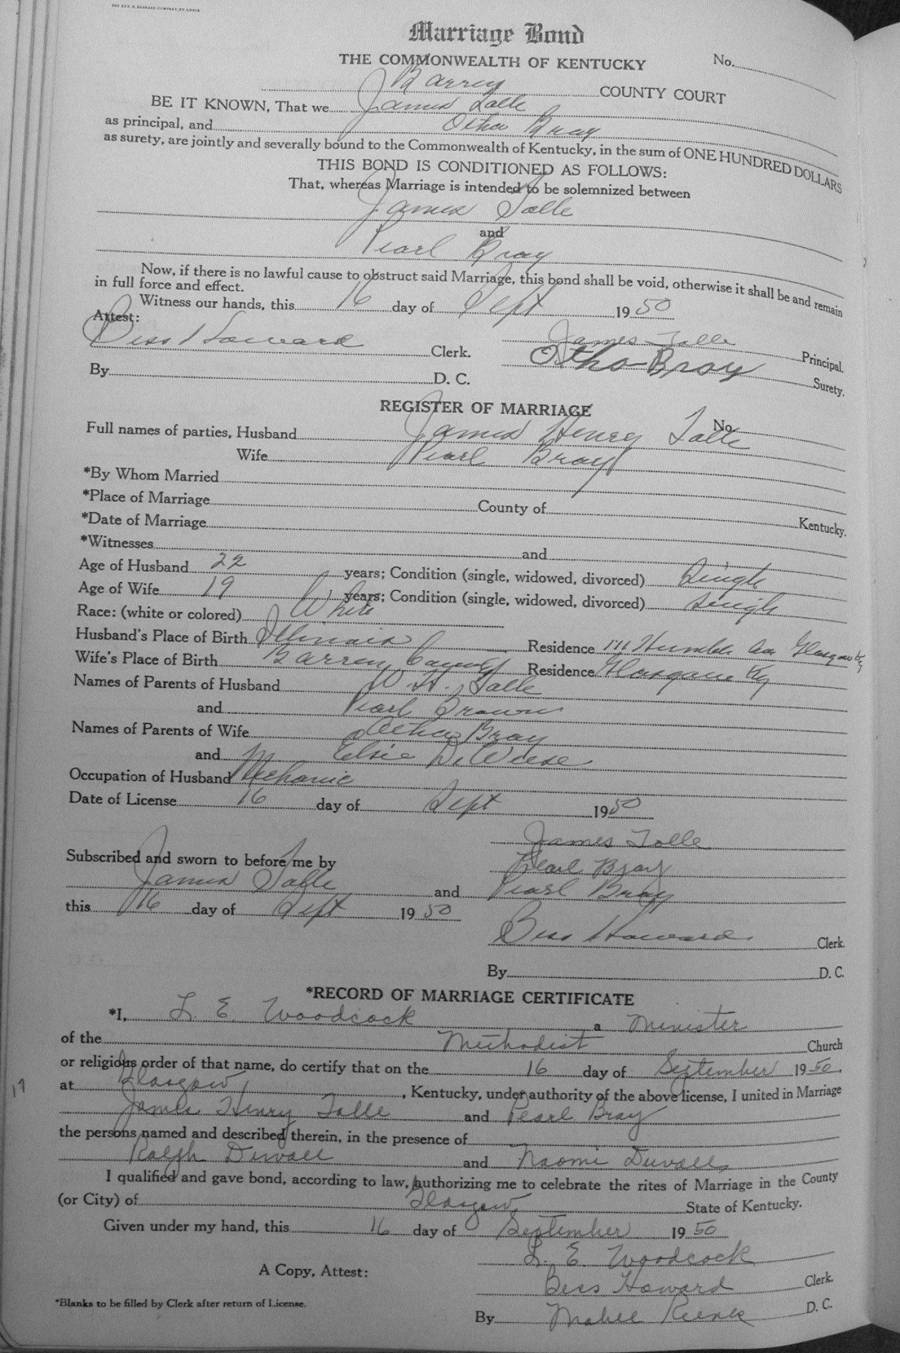 Marriage Bond
THE COMMONWEALTH OF KENTUCKY No.
Barren COUNTY COURT
BE IT KNOWN, That we James Tolle
as principal, and Otha Bray
as surety, are jointly and severally bound to the Commonwealth of Kentucky, in the sum of ONE HUNDRED DOLLARS
THIS BOND IS CONDITIONED AS FOLLOWS:
That, whereas Marriage is intended to be solemnized between
James Tolle
and
Pearl Bray
Now, if there is no lawful cause to obstruct said Marriage, this bond shall be void, otherwise it shall be and remain
in full force and effect.
Witness our hands, this 16 day of Sept 1950
Attest: James Tolle Principal.
Bess Howard Clerk. Otho Bray Surety.
By D. C.
REGISTER OF MARRIAGE
No.
Full names of parties, Husband James Henry Tolle
Wife Pearl Bray
*By Whom Married
*Place of Marriage County of Kentucky.
*Date of Marriage
*Witnesses and
Age of Husband 22 years; Condition (single, widowed, divorced) Single
Age of Wife 19 years; Condition (single, widowed, divorced) single
Race: (white or colored) White
Husband's Place of Birth Illinois Residence 111 Humble Ave Glasgow Ky
Wife's Place of Birth Barren County Residence Glasgow Ky
Names of Parents of Husband W. H. Tolle
and Pearl Brown
Names of Parents of Wife Otha Bray
and Elsie DeWeese
Occupation of Husband Mechanic
Date of License 16 day of Sept 1950
James Tolle
Subscribed and sworn to before me by Pearl Bray
James Tolle and Pearl Bray
this 16 day of Sept 1950
Bess Howard Clerk.
By D. C.
*RECORD OF MARRIAGE CERTIFICATE
*I, L. E. Woodcock a Minister
of the Methodist Church
or religious order of that name, do certify that on the 16 day of September 1950.
at Glasgow, Kentucky, under authority of the above license, I united in Marriage
James Henry Tolle and Pearl Bray
the persons named and described therein, in the presence of
Ralph Duvall and Naomi Duvall
I qualified and gave bond, according to law, authorizing me to celebrate the rites of Marriage in the County
(or City) of Glasgow State of Kentucky.
Given under my hand, this 16 day of September 1950
L. E. Woodcock
A Copy, Attest: Bess Howard Clerk.
*Blanks to be filled by Clerk after return of License. By Mabel D. C.